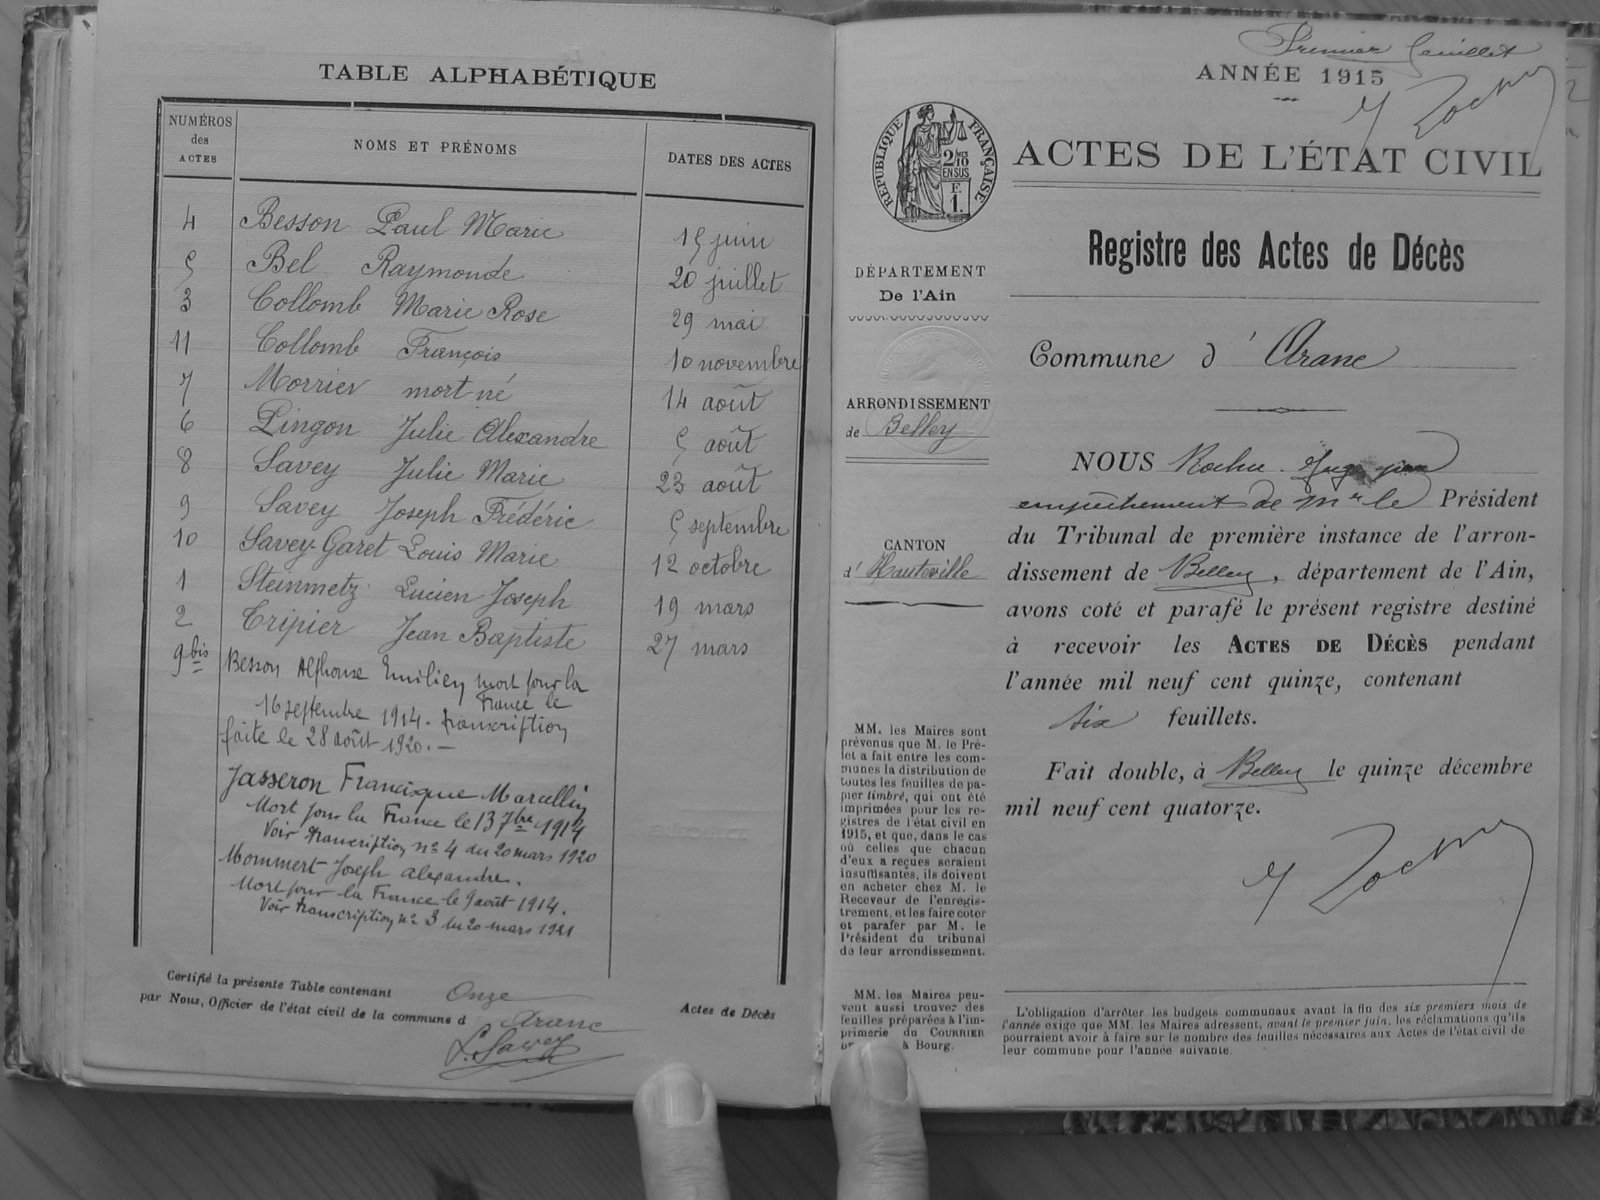 TABLE ALPHABÉTIQUE
NUMÉROS
des
ACTES
NOMS ET PRÉNOMS
DATES DES ACTES
4 Besson Paul Marie 15 juin
5 Bel Raymonde 20 juillet
3 Collomb Marie Rose 29 mai
11 Collomb François 10 novembre
7 Morrier mort né 14 août
6 Pingon Julie Alexandre 5 août
8 Savey Julie Marie 23 août
9 Savey Joseph Frédéric 5 septembre
10 Savey-Garet Louis Marie 12 octobre
1 Steinmetz Lucien Joseph 19 mars
2 Tripier Jean Baptiste 27 mars
9 bis Besson Alphonse Emilien mort pour la
France le
16 septembre 1914. transcription
faite le 28 août 1920. —
Jasseron Francisque Marcellin
Mort pour la France le 13 7bre 1914
Voir transcription n° 4 du 20 mars 1920
Mommert Joseph alexandre.
Mort pour la France le 9 août 1914.
Voir transcription n° 3 du 20 mars 1921
Certifié la présente Table contenant Onze Actes de Décès
par Nous, Officier de l'état civil de la commune d Aranc
L. Savey
Premier feuillet
ANNÉE 1915
RÉPUBLIQUE FRANÇAISE
2/10
EN SUS
F.
1.
ACTES DE L'ÉTAT CIVIL
Registre des Actes de Décès
DÉPARTEMENT
De l'Ain
ARRONDISSEMENT
de Belley
CANTON
d' Hauteville
MM. les Maires sont
prévenus que M. le Pré-
fet a fait entre les com-
munes la distribution de
toutes les feuilles de pa-
pier timbré, qui ont été
imprimées pour les re-
gistres de l'état civil en
1915, et que, dans le cas
où celles que chacun
d'eux a reçues seraient
insuffisantes, ils doivent
en acheter chez M. le
Receveur de l'enregis-
trement, et les faire coter
et parafer par M. le
Président du tribunal
de leur arrondissement.
MM. les Maires peu-
vent aussi trouver des
feuilles préparées à l'im-
primerie du COURRIER
à Bourg.
Commune d' Aranc
NOUS
empêchement de Mr le Président
du Tribunal de première instance de l'arron-
dissement de Belley, département de l'Ain,
avons coté et parafé le présent registre destiné
à recevoir les ACTES DE DÉCÈS pendant
l'année mil neuf cent quinze, contenant
six feuillets.
Fait double, à Belley le quinze décembre
mil neuf cent quatorze.
L'obligation d'arrêter les budgets communaux avant la fin des six premiers mois de
l'année exige que MM. les Maires adressent, avant le premier juin, les réclamations qu'ils
pourraient avoir à faire sur le nombre des feuilles nécessaires aux Actes de l'état civil de
leur commune pour l'année suivante.